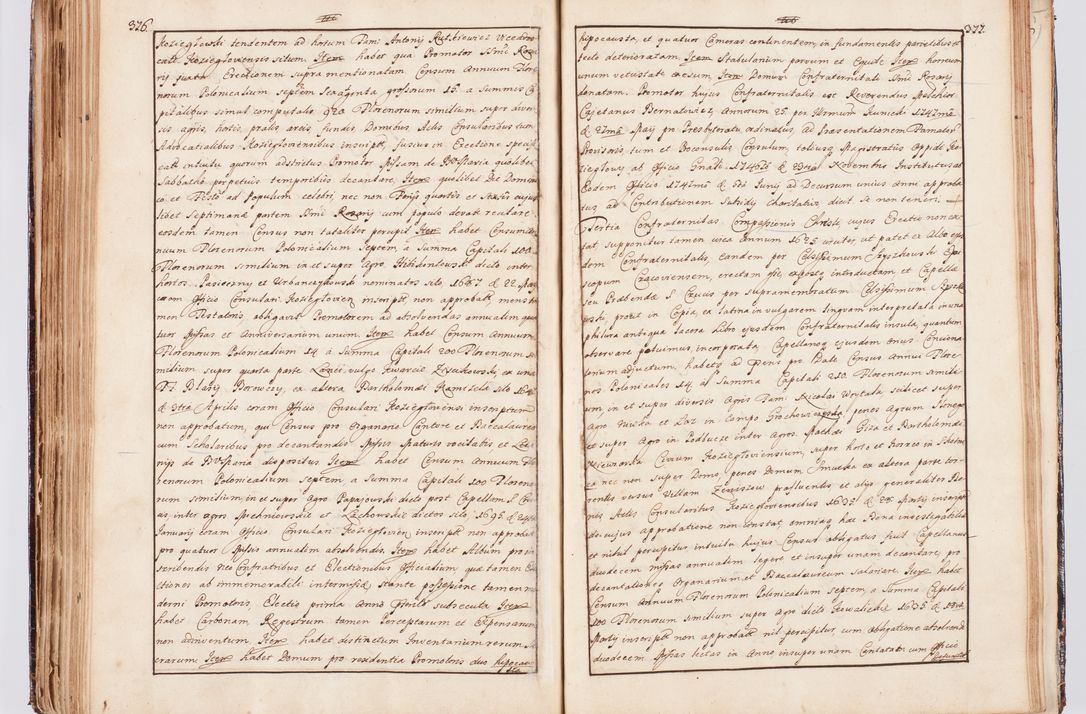 326.
Koziegłowski tendentem ad hortum Pani Antonij Rutkiewicz Viceadvo
cati Koziegloviensis situm. Item habet qua Promotor SSmi Rosa
rij quartam Erectionem supra mentionatam Censum Annuum Flore
norum Polonicalium Septem Sexaginta grossorum 15. a Summis Ca
pitalibus simul computatis 970 Florenorum similium super diver
sis agris, hortis, pratis, areis, fundis, Domibus Actis Consularibus tum
Advocatialibus Koziegloviensibus inscript, fusius in Erectione specifi
cat, intuitu quorum adstrictus Promotor Missam de B. Maria quolibet
Sabbatho perpetuis temporibus decantare, Item quolibet Die Domini
co, et Festo ad Populum celebri, nec non Ferijs quartis et Sextis cujus
libet Septimanæ partem SSmi Rosarij cum populo devote recitare.
eosdem tamen Census non totaliter percipit Item habet Censum An
nuum Florenorum Polonicalium Septem, a Summa Capitali 100
Florenorum similium in et super Agro dicto inter
hortos Pasierny et Urbanczykowski nominatos sito, 1687 d 22 Martij
coram Officio Consulari Kozieglovien inscript, non approbat, mens ta
men Testatoris obligavit Promotorem ad absolvendas annuatim qua
tuor Missas et Anniversarium unum. Item habet Censum Annuum
Florenorum Polonicalium 14 a Summa Capitali 200 Florenorum si
milium super quarta parte Lanei vulgo Kwarcie Zyschowski, ex una
Borowczy, ex altera Bartholomæi Ramsela sito 164
d 3tia Aprilis coram Officio Consulari Kozieglovensi inscriptum
non approbatum, qui Census pro Organario Cantore et Baccalaureo
cum Scholaribus pro decantandis Missis Maturis rocitatis et Lita
nijs de B. Maria dispositus Item habet Censum Annuum Flo
renorum Polonicalium septem, a Summa Capitali 100 Floreno
rum similium, in et super Agro Papajowski dicto post Capellam S. Cru
cis, inter agros Michniowskie et Lachowskie dictos sito, 1695 d 24
Januarij coram Officio Consulari Kozieglovien, inscript non approbat
pro quatuor Missis annuatim absolvendis. Item habet Album pro in
scribendis neo Confratribus et Electionibus Officialium quæ tamen E
lectiones ab immemorabili intermissæ, stante possessione tamen mo
derni Promotoris, Electio prima Anno præterito subsecuta Item
habet Carbonam, Regestrum tamen Perceptarum et Expensarum
non adinventum Item habet distinctum Inventarium rerum sa
crarum. Item habet Domum pro residentia Promotoris duo hypocau
sta
327.
hypocausta, et quatuor Cameras continentem, in fundamentis parietibus et
tecto deterioratam Item Stabulanium parvum et Equile Item horreum
unum vetustate exesum, Item Domum Confraternitati SSmi Rosarij
donatam. Promotor hujus Confraternitatis est Reverendus Melchior
Cajetanus Bernatowicz, Annorum 25. per Illrmum Kunicki 1742mo
d 27ma Maij in Presbyterum ordinatus, ad Præsentationem Famatorum
Provisoris, tum et Proconsulis Consulum, totiusq Magistratus Oppidi Ko
zieglowy, ab Officio Gnali 1746to d 23tia Novembris Institutus, ab
Eodem Officio 1747mo d 6ta Junij ad Decursum unius anni approba
tus, ad Contributionem Subsidy charitativi, dicit se non teneri.
Tertia Confraternitas Compassionis Christi, cujus Erectio non ex
tat, supponitur tamen circa Annum 1635 oriuter, ut patet ex Albo ejus
dem Confraternitatis, eandem per Celsissimum Szyszkowski Epi
scopum Cracoviensem, erectam sic exposito introductam, et Capellæ
seu Præbendæ S. Crucis per supramemoratum Celsissimum Szysz
kowski, prout in Copia, ex latina in vulgarem lingvam interpretata in una
philira antiqua lacera Libro ejusdem Confraternitatis insuta, quantum
observare potuimus, incorporata, Capellanoq ejusdem onus Conciona
torium adjectum, habetq ad pręns pro Dote Census Annui Flore
nos Polonicales 14 a Summa Capitali 210 Florenorum simili
um, in et super diversis Agris Fam: Nicolai Woytala scilicet super
Agro et Laz in Campo Grochowie penes Agrum
et super Agro in Podlucze inter Agros Mathiæ Giza et Bartholomæi
Civium Kozieglowiensium, super horto et horreo in Scholna
ex nec non super Domo, penes Domum Smucka ex altera parte tor
rentis versus Villam Zewiszow profluentis et alijs generaliter Bo
nis Actis Consularibus Kozieglowensibus 1635 d 28 Martij inscript
de cujus approbatione non constat, omniaq hæc Bona investigabilia
et nihil percipitur intuitu hujus Census obligatus fuit Capellanus
duodecem missas annuatim legere et insuper unam decantare, pro
decantatione Organarium et Baccalaureum salariare. Item habet
Censum Annuum Florenorum Polonicalium septem, a Summa Capitali
100 Florenorum similium super Agro dicto Kowalickie 1635 d
Martij inscript non approbat nil percipitur, cum obligatione absolvendi
duodecem Missas lectas in Anno, insuper unam Cantatam cum Officio
Defunctor